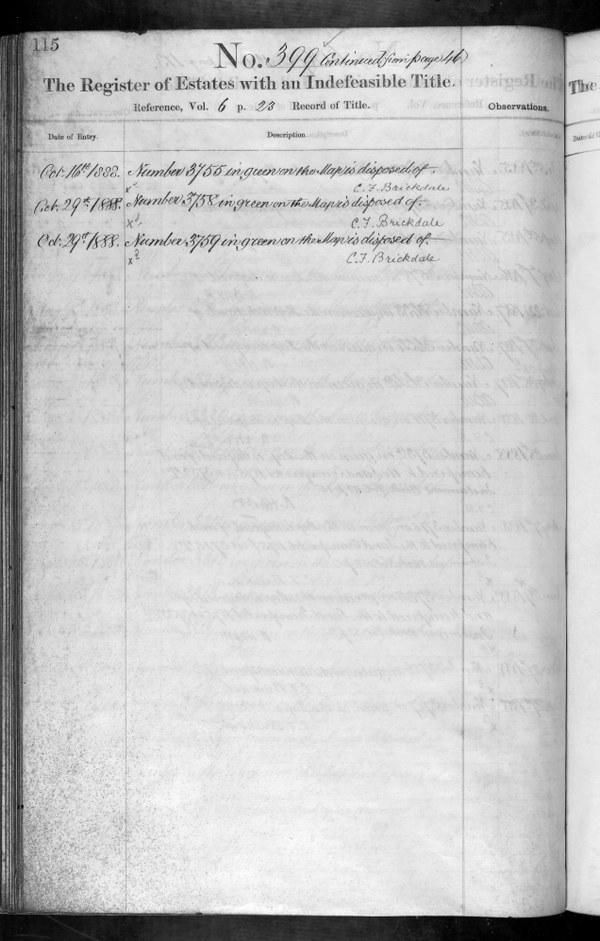 115
No. 399 Continued from page 46
The Register of Estates with an Indefeasible Title.
Reference, Vol. 6 p. 23 Record of Title.
Observations.
Date of Entry.
Description
Oct. 16th 1888. Number 3755 in green on the Map is disposed of.
C. F. Brickdale
Oct. 29th 1888. Number 3758 in green on the Map is disposed of.
C. F. Brickdale
Oct. 29th 1888. Number 3759 in green on the Map is disposed of.
C. F. Brickdale
The